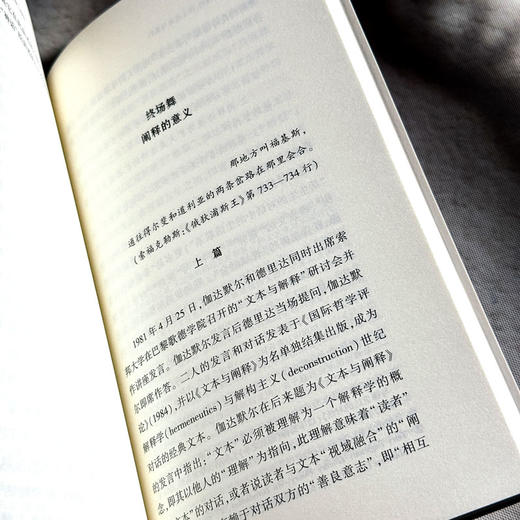 终场舞
阐释的意义
那地方叫福基斯，
通往得尔斐和道利亚的两条岔路在那里会合。
（索福克勒斯：《俄狄浦斯王》第 733—734 行）
上 篇
1981 年 4 月 25 日，伽达默尔和德里达同时出席索
邦大学在巴黎歌德学院召开的“文本与解释”研讨会并
作讲座发言。伽达默尔发言后德里达当场提问，伽达默
尔即席作答。二人的发言和对话发表于《国际哲学评
论》(1984)，并以《文本与阐释》为名单独结集出版，成为
解释学(hermeneutics)与解构主义(deconstruction)世纪
对话的经典文本。伽达默尔在后来题为《文本与阐释》
的发言中指出：“文本”必须被理解为一个解释学的概
念，即其以他人的“理解”为指向，此理解意味着“读者”
“文本”的对话，或者说读者与文本“视域融合”的“阐
赖于对话双方的“善良意志”，即“相互